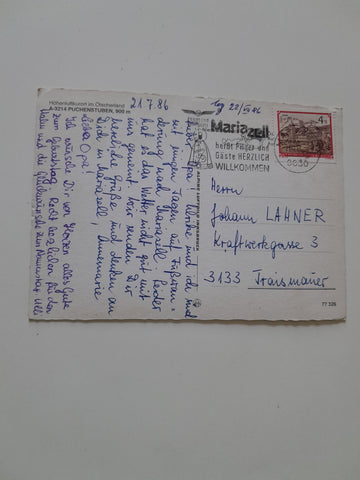 Höhenluftkurort im Ötscherland
A-3214 PUCHENSTUBEN, 900 m
21.7.86
Lieber Opa! Ulrike und ich sind
seit einigen Tagen auf Fußwan-
derung nach Mariazell. Leider
hat es das Wetter nicht gut mit
uns gemeint. Wir senden Dir
herzliche Grüße und denken an
Dich in Mariazell, Annemarie
Lieber Opa!
Ich wünsche Dir von Herzen alles Gute
zum Geburtstag. Recht herzlichen für den
und die Glückwünsche zum Namenstag. Ulli
Mariazell
heißt Pilger und
Gäste HERZLICH
WILLKOMMEN
8630
4
Herrn
Johann LAHNER
Kraftwerkgasse 3
3133 Traismauer
77 326